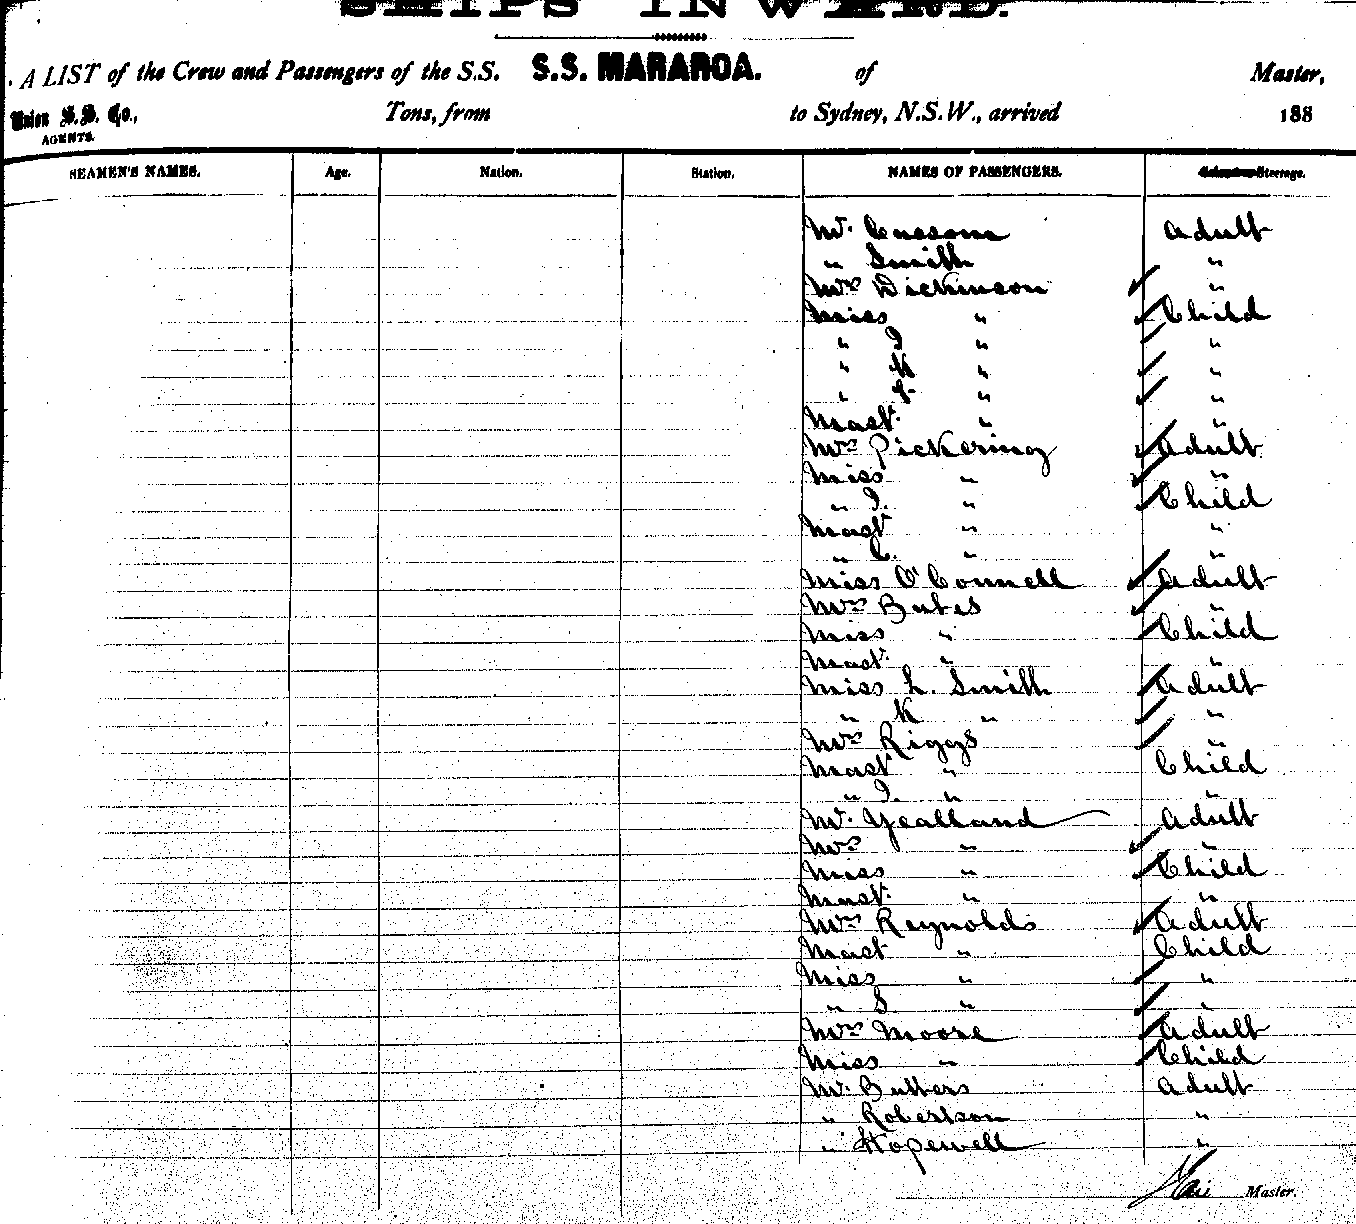 SHIPS INWARD.
A LIST of the Crew and Passengers of the S.S. S.S. MARAROA. of Master,
Union S.S. Co., Tons, from to Sydney, N.S.W., arrived 188
AGENTS.
SEAMEN'S NAMES. Age. Nation. Station. NAMES OF PASSENGERS. Steerage.
Mr. Cussons Adult
" Smith "
Mrs Dickinson "
Miss " Child
" J " "
" M " "
" " "
Mast. " "
Mrs Pickering Adult
Miss " "
" J. " Child
Mast " "
" C. " "
Miss O'Connell Adult
Mrs Bates "
Miss " Child
Mast. " "
Miss L. Smith Adult
" K " "
Mrs Riggs "
Mast " Child
" J. " "
Mr. Yealland Adult
Mrs " "
Miss " Child
Mast. " "
Mrs Reynolds Adult
Mast " Child
Miss " "
" S " "
Mrs Moore Adult
Miss " Child
Mr. Butters Adult
" Robertson "
" Hopewell "
Master.